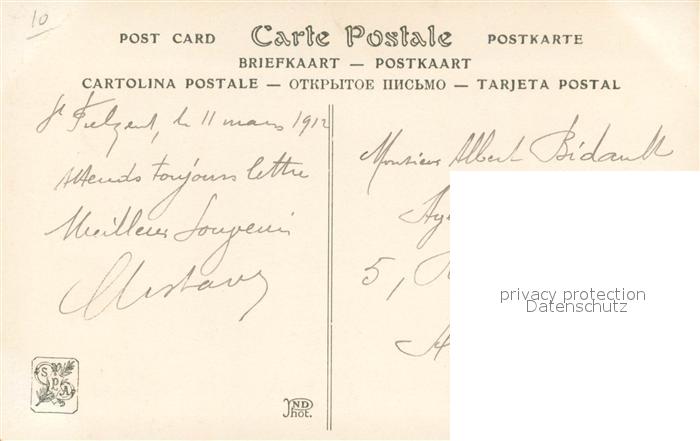 10
POST CARD Carte Postale POSTKARTE
BRIEFKAART — POSTKAART
CARTOLINA POSTALE — ОТКРЫТОЕ ПИСЬМО — TARJETA POSTAL
St , le 11 mars 1912
Attends toujours lettre
Meilleur Souvenir
Gustave
Monsieur Albert Bidault
5,
privacy protection
Datenschutz
SPA
ND
Phot.